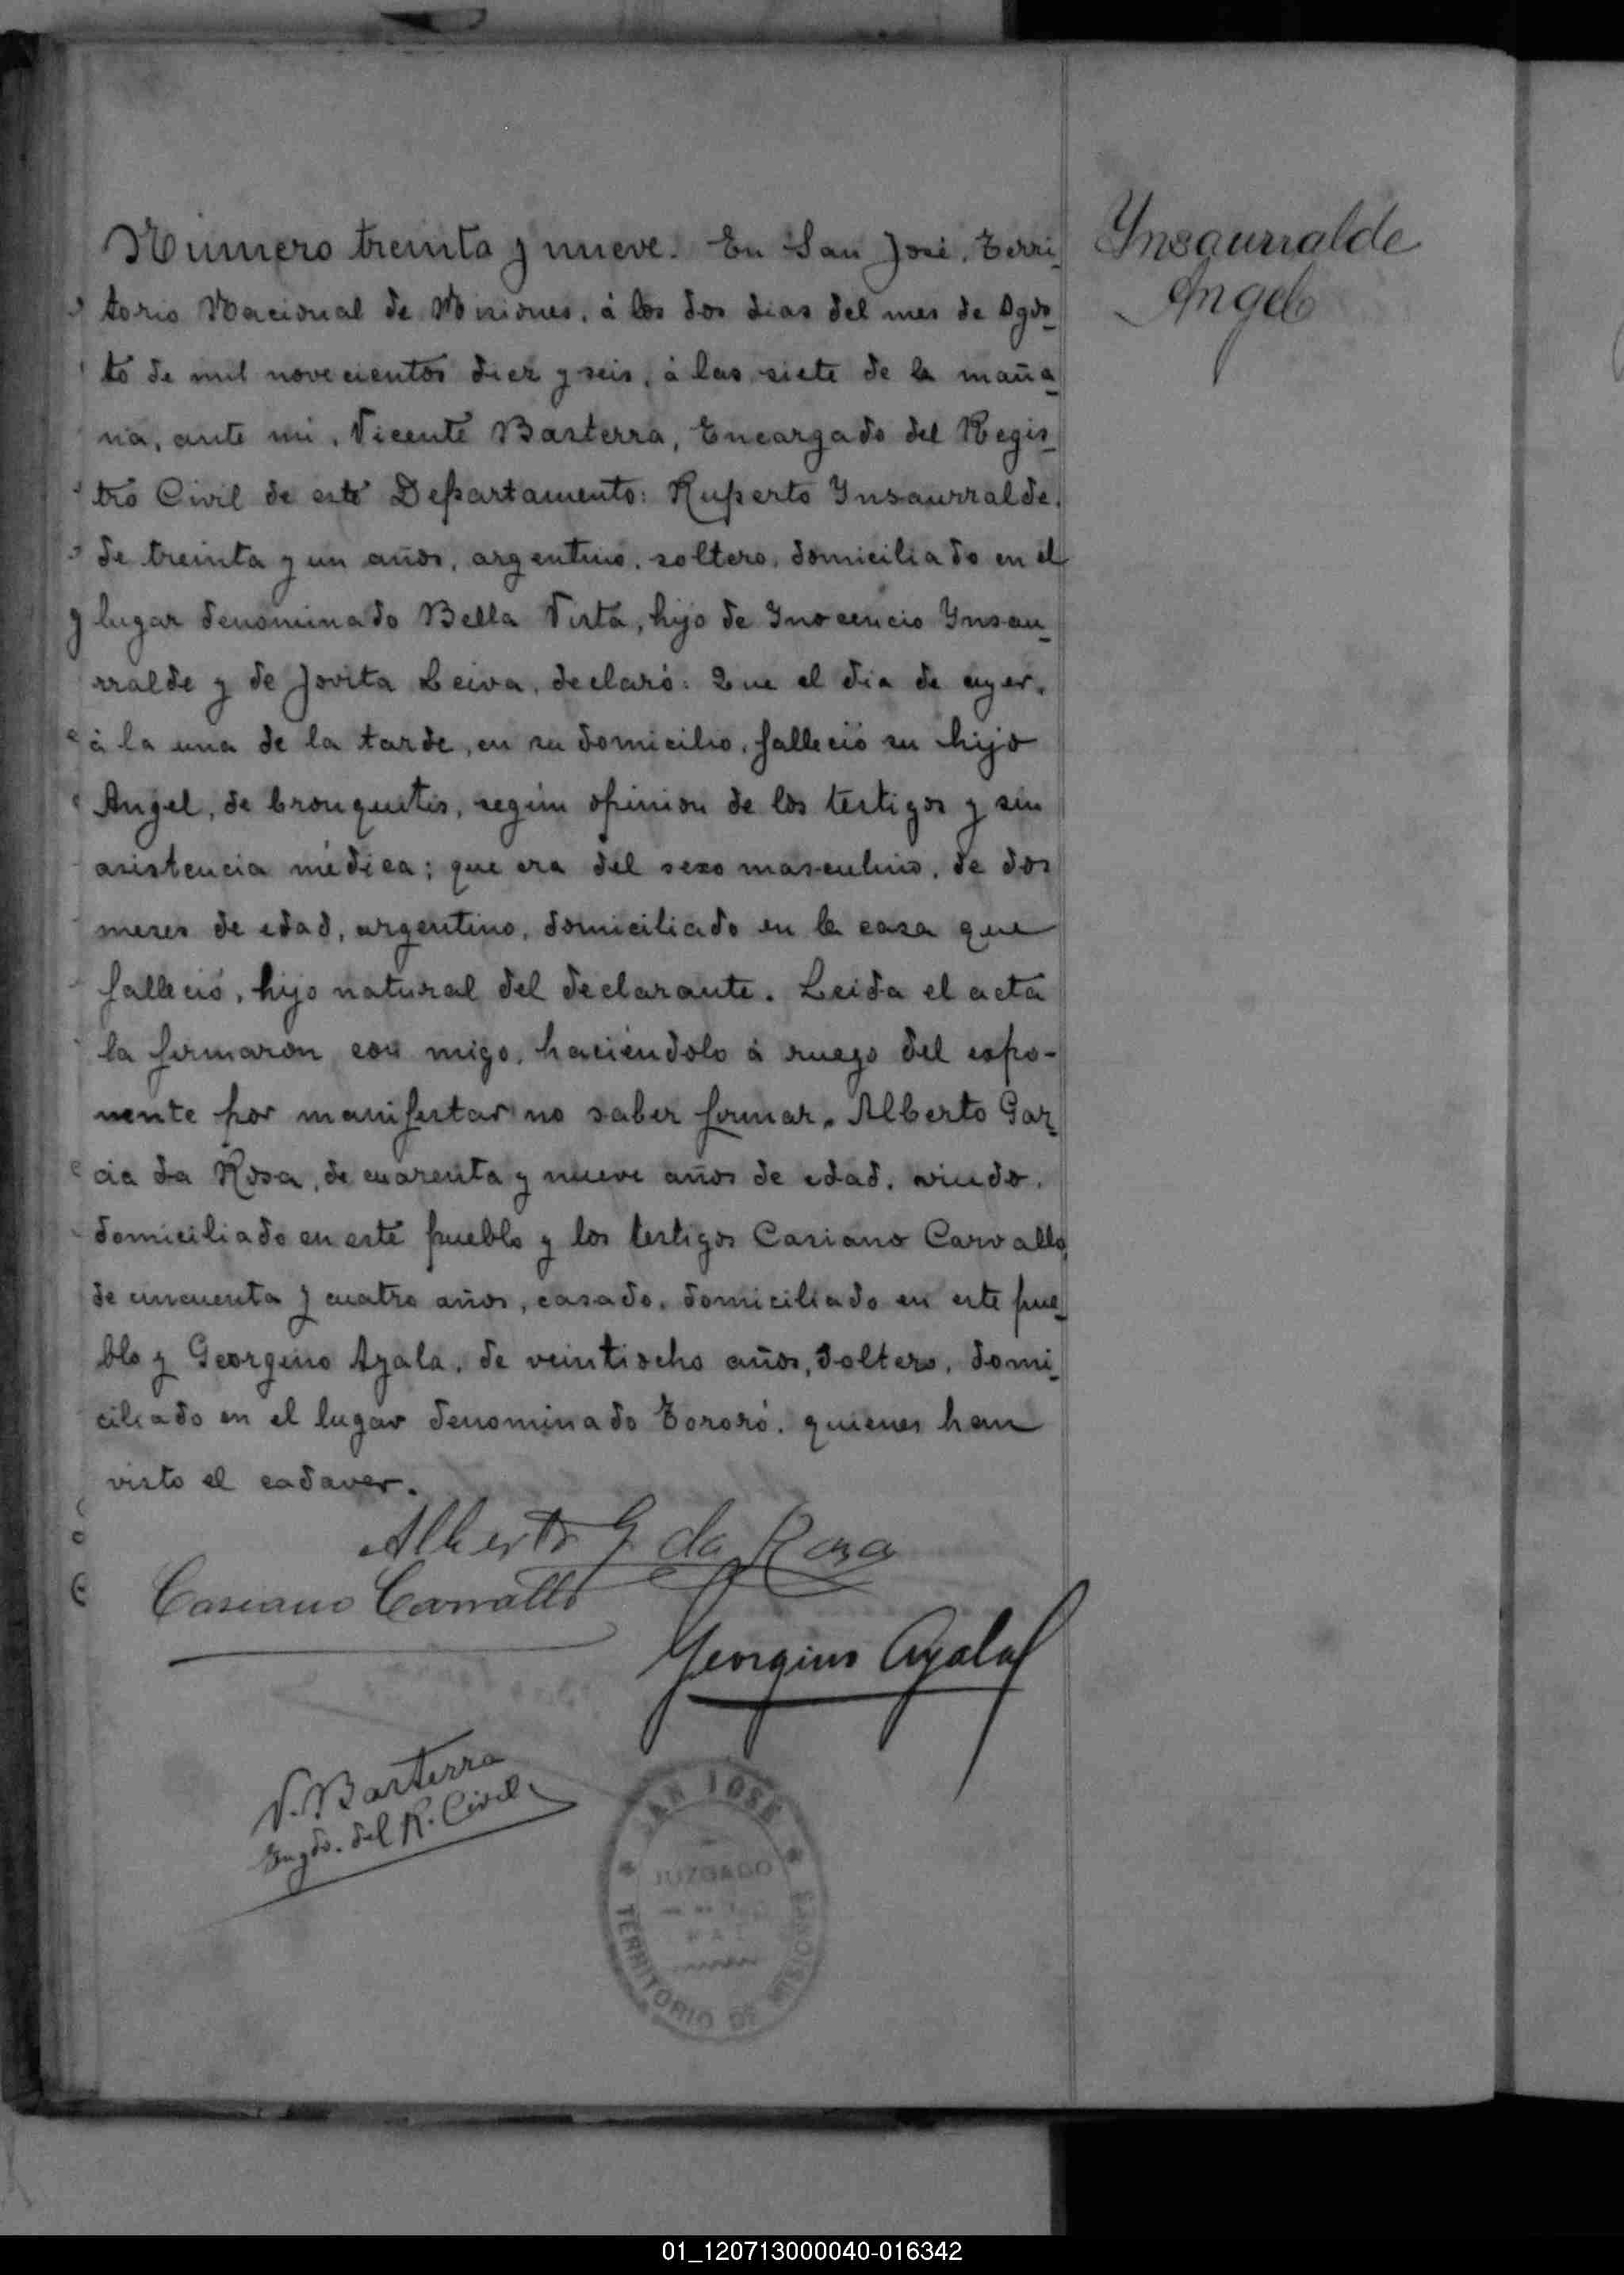 Número treinta y nueve. En San José, Terri_
torio Nacional de Misiones, á los dos dias del mes de Agos_
to de mil novecientos diez y seis, á las siete de la maña_
na, ante mi, Vicente Basterra, Encargado del Regis_
tro Civil de este Departamento: Ruperto Ynsaurralde,
de treinta y un años, argentino, soltero, domiciliado en el
lugar denominado Bella Vista, hijo de Inocencio Ynsau_
rralde y de Jovita Leiva, declaró: Que el dia de ayer,
á la una de la tarde, en su domicilio, falleció su hijo
Angel, de bronquitis, según opinion de los testigos y sin
asistencia médica; que era del sexo masculino, de dos
meses de edad, argentino, domiciliado en la casa que
falleció, hijo natural del declarante. Leida el acta
la firmaron con migo, haciéndolo á ruego del espo-
nente por manifestar no saber firmar, Alberto Gar_
cia da Rosa, de cuarenta y nueve años de edad, viudo,
domiciliado en este pueblo y los testigos Casiano Carvallo,
de cincuenta y cuatro años, casado, domiciliado en este pue_
blo y Georgino Ayala, de veintiocho años, soltero, domi_
ciliado en el lugar denominado Tororó, quienes han
visto el cadaver.
Alberto G da Rosa
Casiano Carvallo
Georgino Ayala
V. Basterra
Engdo. del R. Civil
SAN JOSÉ
JUZGADO
TERRITORIO DE MISIONES
Ynsaurralde
Angel
01_120713000040-016342